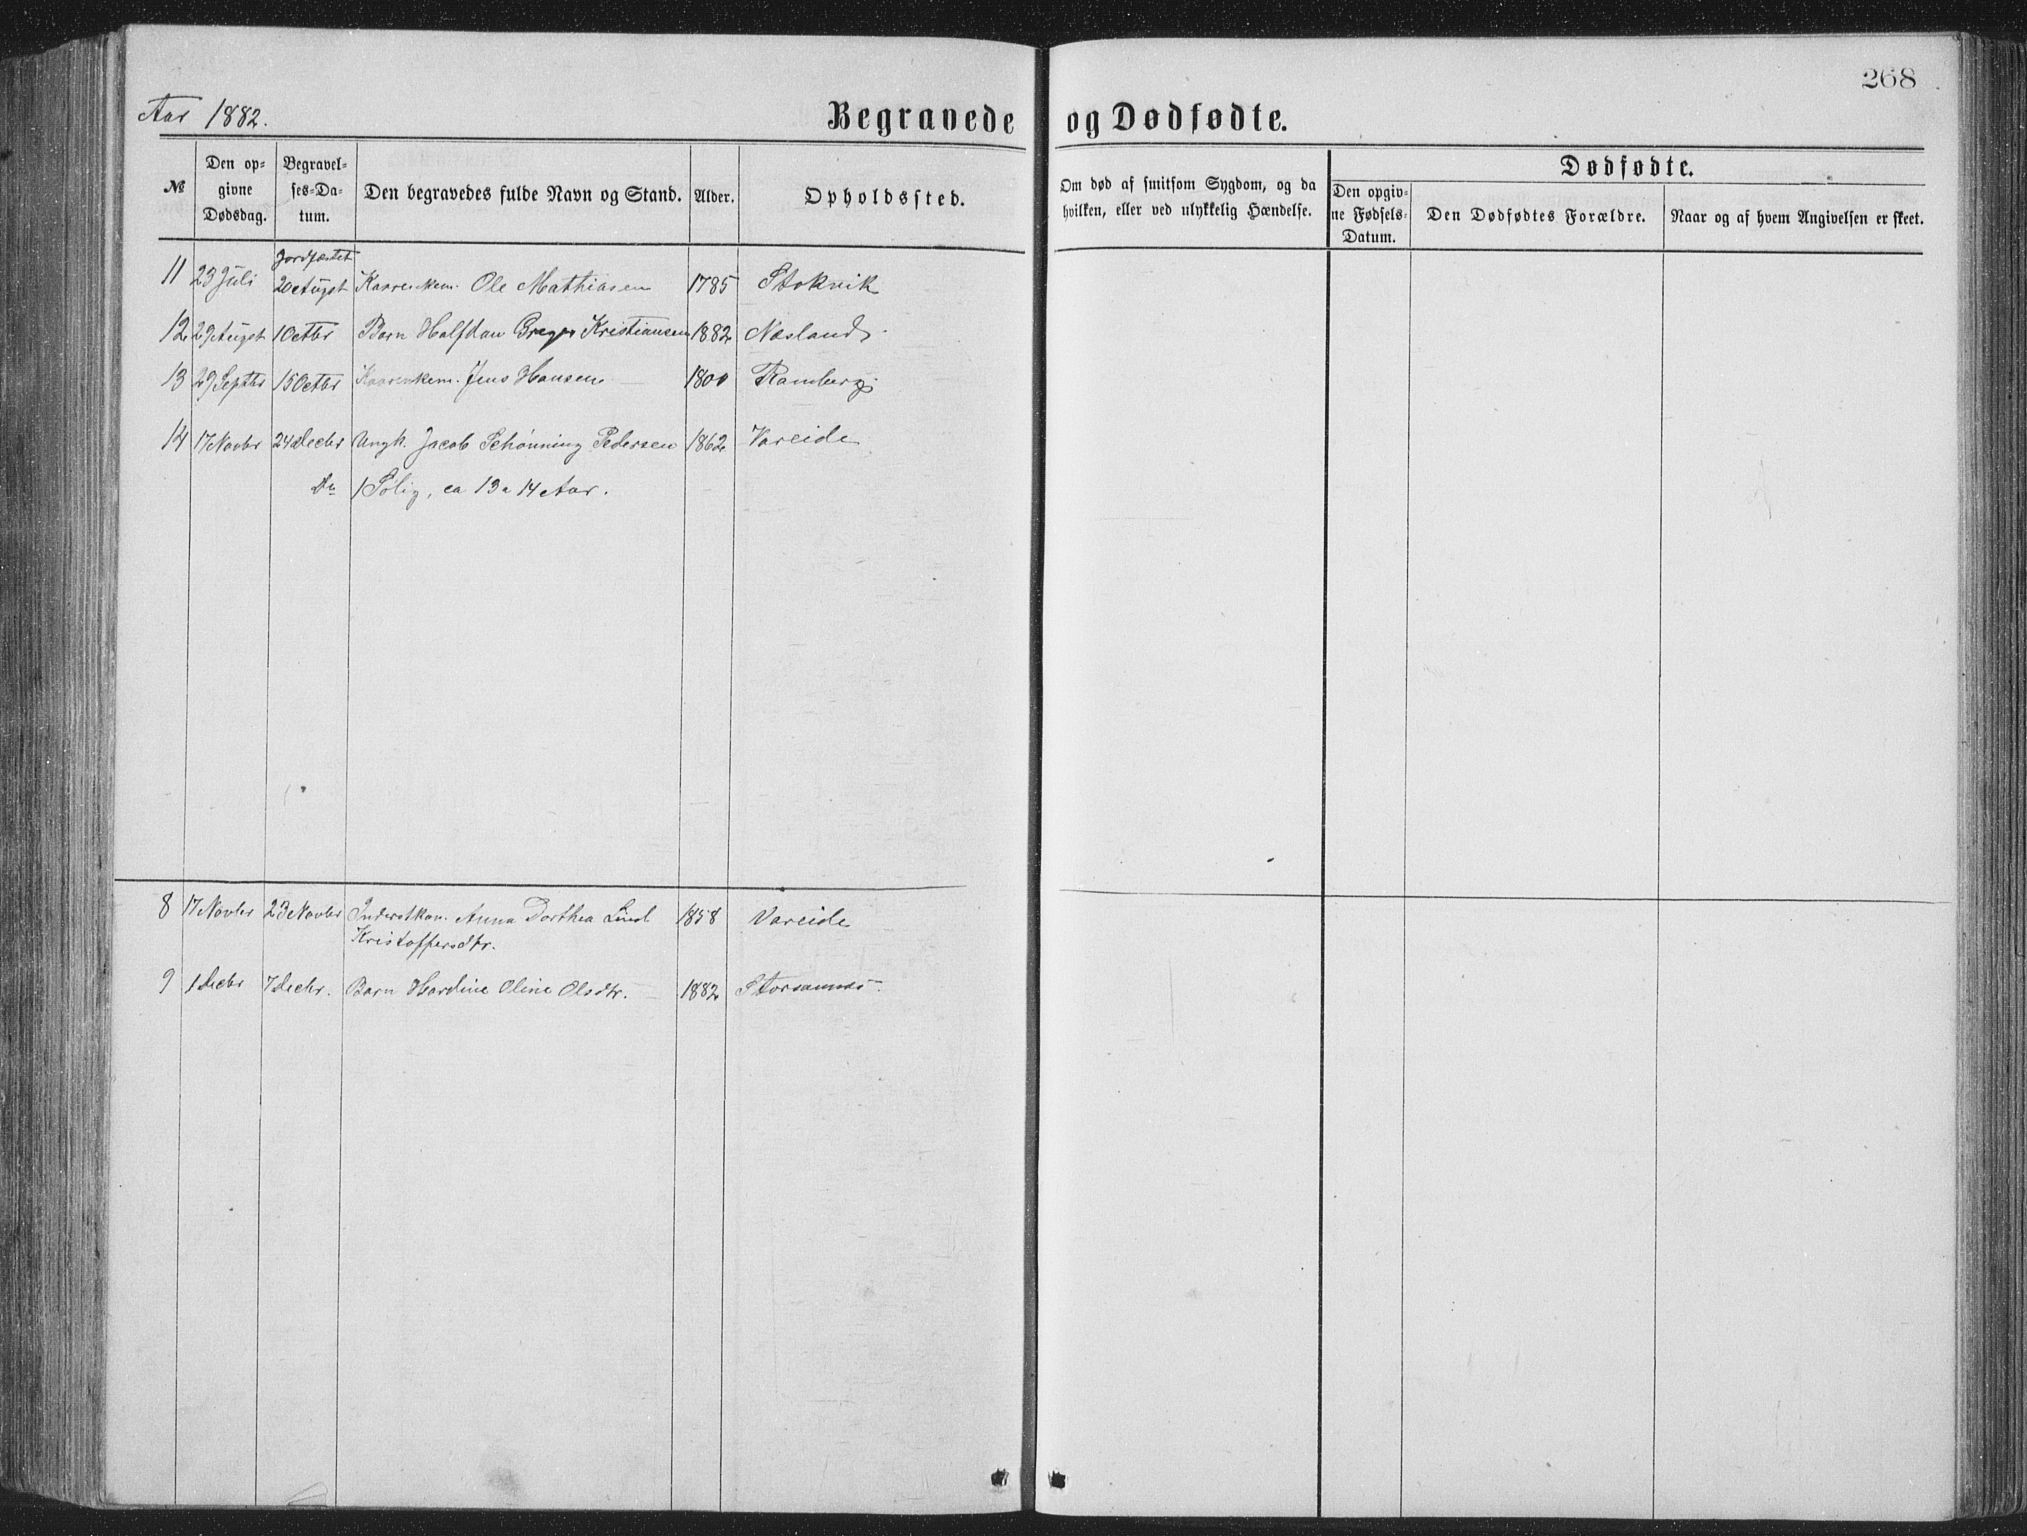 268
Aar 1882.
Begravede og Dødfødte.
№
Den opgivne Dødsdag.
Begravelses-Datum.
Den begravedes fulde Navn og Stand.
Alder.
Opholdssted.
Om død af smitsom Sygdom, og da hvilken, eller ved ulykkelig Hændelse.
Dødfødte.
Den opgivne Fødsels-Datum.
Den Dødfødtes Forældre.
Naar og af hvem Angivelsen er skeet.
Jordfæstet
11 23 Juli 20 Augst Kaarenkem. Ole Mathiasen 1785 Stokvik
12 29 Augst 1 Octbr Barn Halfdan Greger Kristiansen 1882 Næsland
13 29 Septbr 15 Octbr Kaarenkem. Jens Hansen 1800 Ramberg
14 17 Novbr 24 Decbr Ungk. Jacob Schønning Pedersen 1862 Vareide
1 Sølig, ca 13 a 14 Aar.
8 17 Novbr 23 Novbr Inderstkon. Anna Dorthea Lind 1858 Vareide
Kristoffersdtr.
9 1 Decbr 7 Decbr. Barn Hardine Oline Olsdtr. 1882 Storsannes